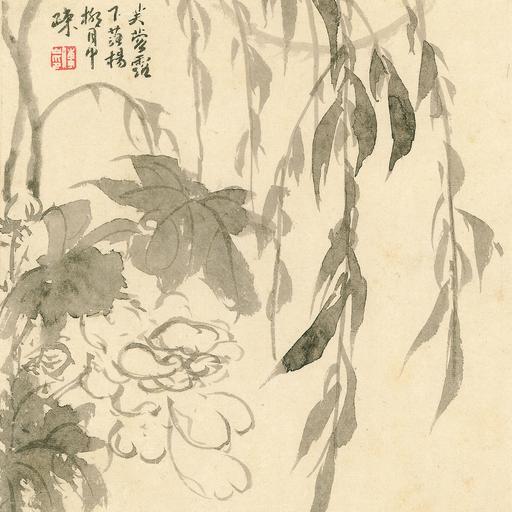 芙蓉露
下落楊
柳月中
疎